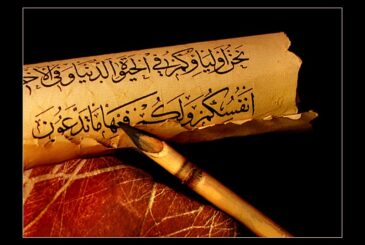 نحن أولياؤكم في الحيوة الدنيا وفي الآخ
أنفسكم ولكم فيها ما تدعون